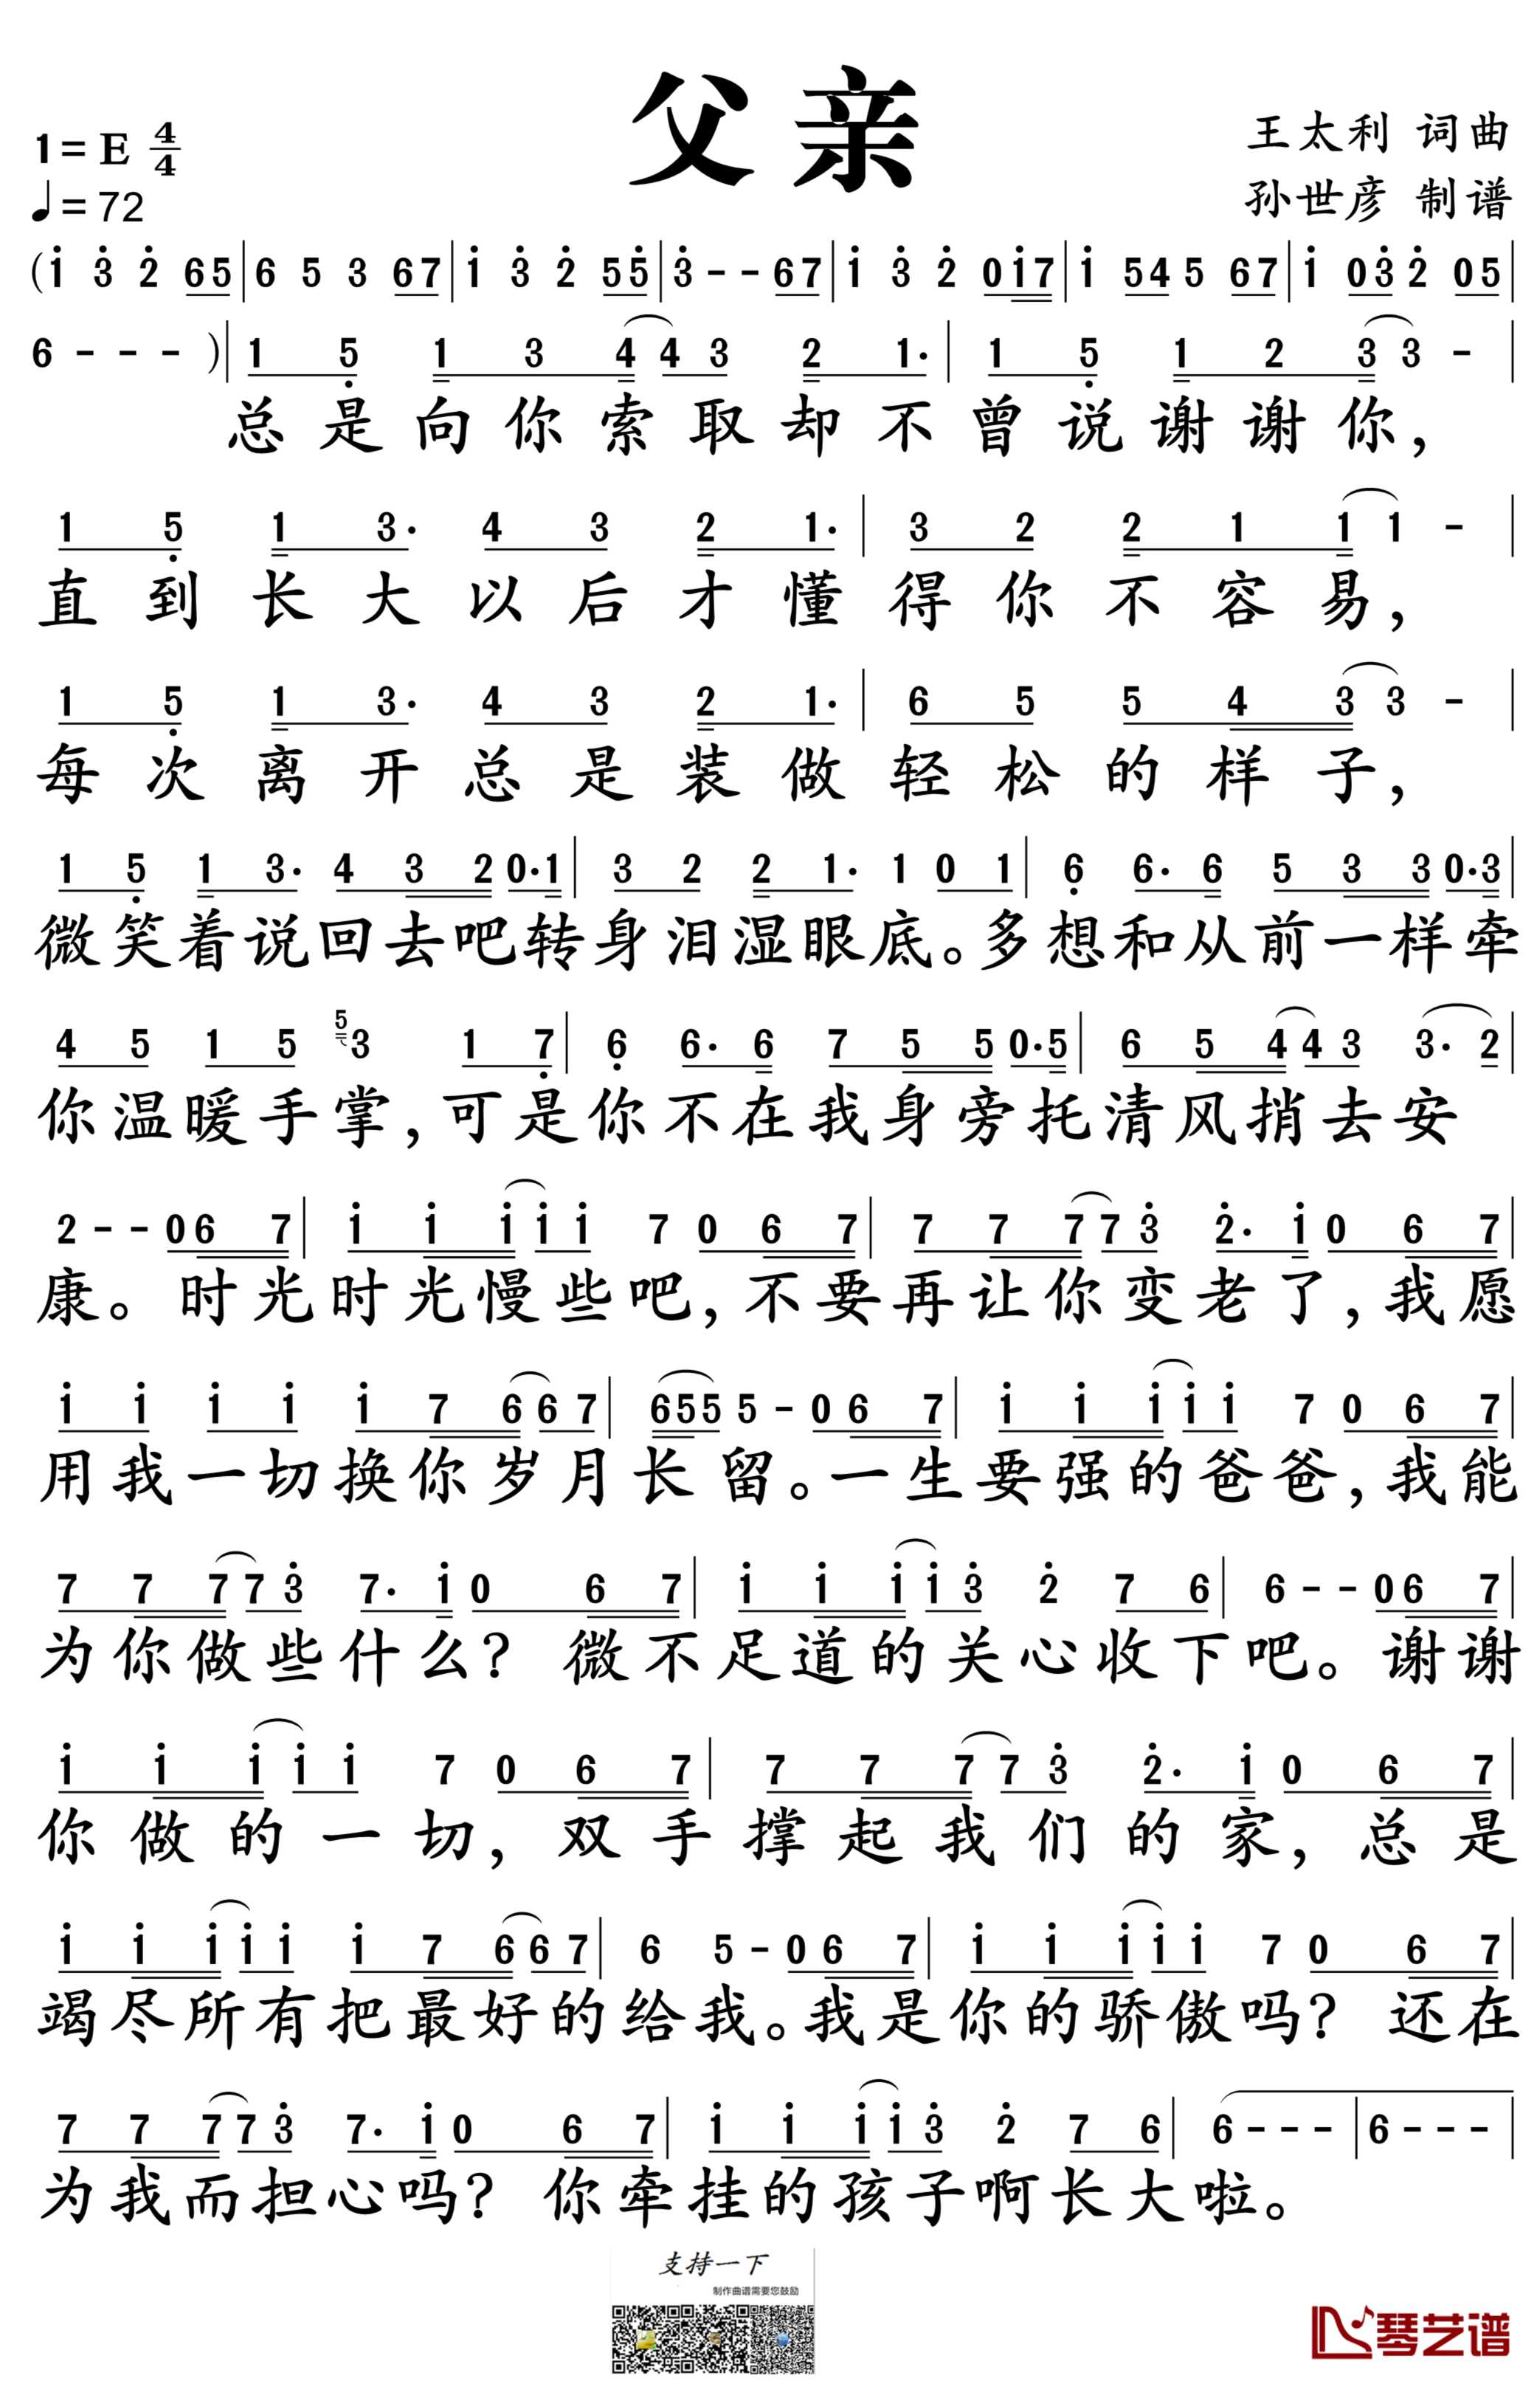 父亲
1= E 4/4
♩= 72
王太利 词曲
孙世彦 制谱
(i̇ 3̇ 2̇ 65|6 5 3 67|i̇ 3̇ 2̇ 55̇|3̇ - - 67|i̇ 3̇ 2̇ 0i̇7|i̇ 54 5 67|i̇ 03̇ 2̇ 05|
6 - - - )|1 5̣ 1 3 4 4 3 2 1·|1 5̣ 1 2 3 3 -|
总是向你索取却不曾说谢谢你，
1 5̣ 1 3· 4 3 2 1·|3 2 2 1 1 1 -|
直到长大以后才懂得你不容易，
1 5̣ 1 3· 4 3 2 1·|6 5 5 4 3 3 -|
每次离开总是装做轻松的样子，
1 5̣ 1 3· 4 3 2 0·1|3 2 2 1· 1 0 1|6̣ 6· 6 5 3 3 0·3|
微笑着说回去吧转身泪湿眼底。多想和从前一样牵
4 5 1 5 5 3 1 7̣|6̣ 6· 6 7 5 5 0·5|6 5 4 4 3 3· 2|
你温暖手掌，可是你不在我身旁托清风捎去安
2 - - 0 6 7|i̇ i̇ i̇ i̇ i̇ 7 0 6 7|7 7 7 7 3̇ 2̇· i̇ 0 6 7|
康。时光时光慢些吧，不要再让你变老了，我愿
i̇ i̇ i̇ i̇ i̇ 7 6 6 7|655 5 - 0 6 7|i̇ i̇ i̇ i̇ i̇ 7 0 6 7|
用我一切换你岁月长留。一生要强的爸爸，我能
7 7 7 7 3̇ 7· i̇ 0 6 7|i̇ i̇ i̇ i̇ 3̇ 2̇ 7 6|6 - - 0 6 7|
为你做些什么？微不足道的关心收下吧。谢谢
i̇ i̇ i̇ i̇ i̇ 7 0 6 7|7 7 7 7 3̇ 2̇· i̇ 0 6 7|
你做的一切，双手撑起我们的家，总是
i̇ i̇ i̇ i̇ i̇ i̇ 7 6 6 7|6 5 - 0 6 7|i̇ i̇ i̇ i̇ i̇ 7 0 6 7|
竭尽所有把最好的给我。我是你的骄傲吗？还在
7 7 7 7 3̇ 7· i̇ 0 6 7|i̇ i̇ i̇ i̇ 3̇ 2̇ 7 6|6 - - -|6 - - -|
为我而担心吗？你牵挂的孩子啊长大啦。
支持一下
制作曲谱需要您鼓励
琴艺谱